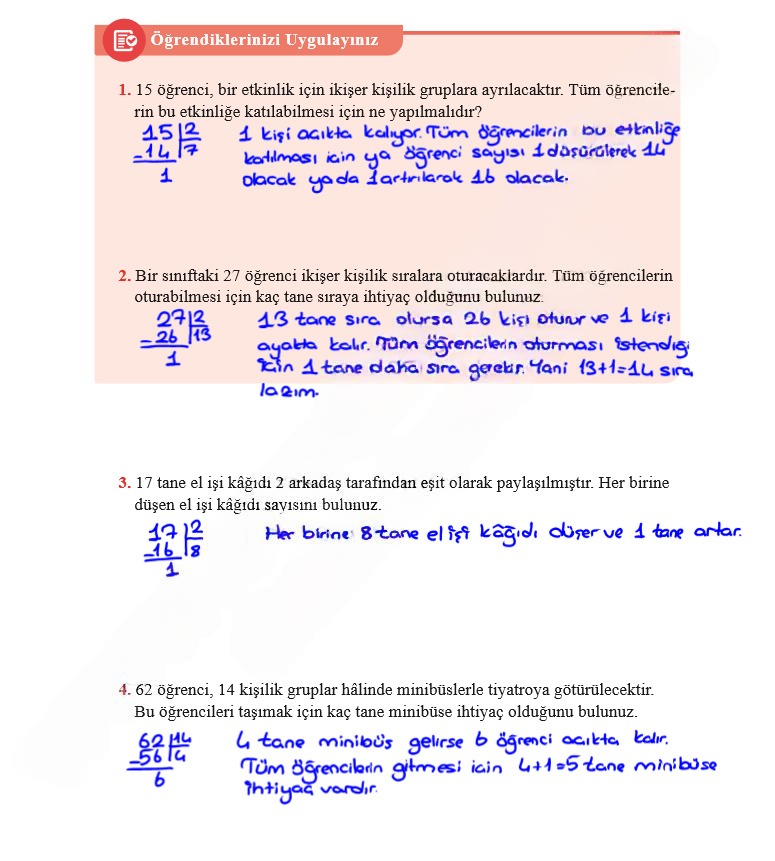 Öğrendiklerinizi Uygulayınız
1. 15 öğrenci, bir etkinlik için ikişer kişilik gruplara ayrılacaktır. Tüm öğrencile-
rin bu etkinliğe katılabilmesi için ne yapılmalıdır?
15 2 1 kişi açıkta kalıyor. Tüm öğrencilerin bu etkinliğe
-14 7 katılması için ya öğrenci sayısı 1 düşürülerek 14
1 olacak ya da 1 artırılarak 16 olacak.
2. Bir sınıftaki 27 öğrenci ikişer kişilik sıralara oturacaklardır. Tüm öğrencilerin
oturabilmesi için kaç tane sıraya ihtiyaç olduğunu bulunuz.
27 2 13 tane sıra olursa 26 kişi oturur ve 1 kişi
-26 13 ayakta kalır. Tüm öğrencilerin oturması istendiği
1 için 1 tane daha sıra gerekir. Yani 13+1=14 sıra
lazım.
3. 17 tane el işi kâğıdı 2 arkadaş tarafından eşit olarak paylaşılmıştır. Her birine
düşen el işi kâğıdı sayısını bulunuz.
17 2 Her birine 8 tane el işi kâğıdı düşer ve 1 tane artar.
-16 8
1
4. 62 öğrenci, 14 kişilik gruplar hâlinde minibüslerle tiyatroya götürülecektir.
Bu öğrencileri taşımak için kaç tane minibüse ihtiyaç olduğunu bulunuz.
62 14 4 tane minibüs gelirse 6 öğrenci açıkta kalır.
-56 4 Tüm öğrencilerin gitmesi için 4+1=5 tane minibüse
6 ihtiyaç vardır.